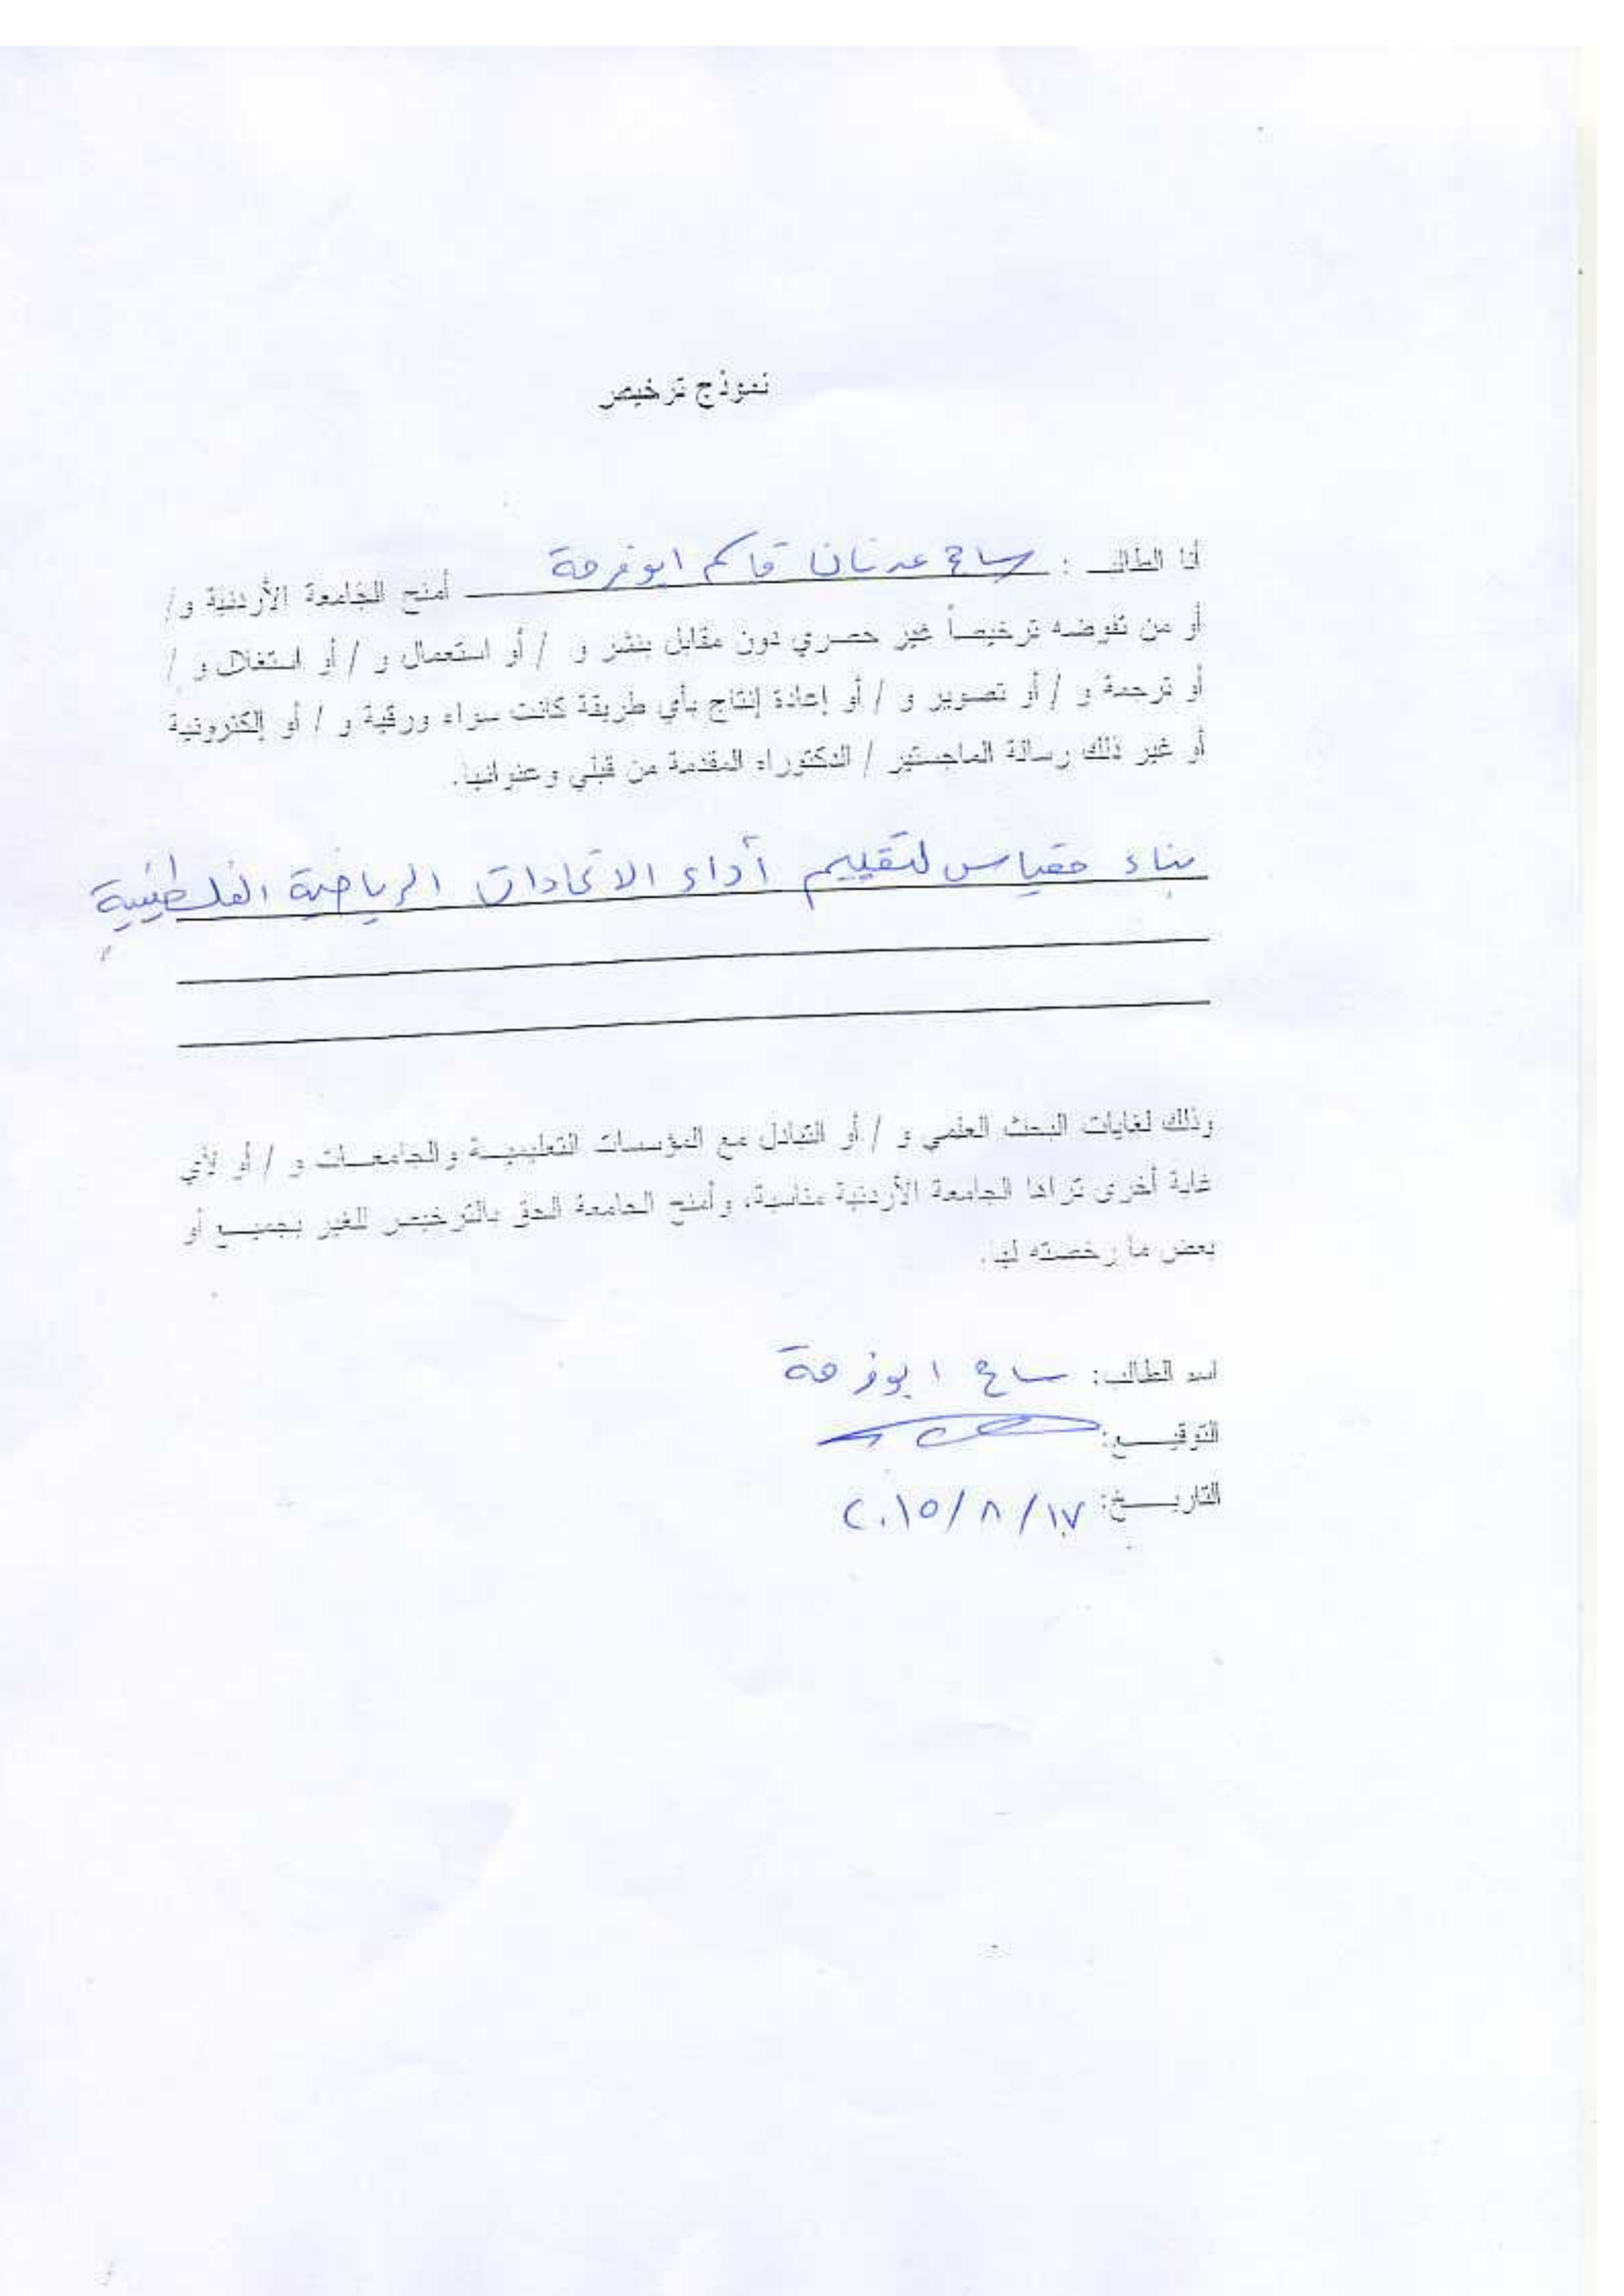 نموذج ترخيص
أنا الطالب : سامح عدنان قاسم ابوفرحة أمنح الجامعة الأردنية و/
أو من تفوضه ترخيصاً غير حصري دون مقابل بنشر و / أو استعمال و / أو استغلال و /
أو ترجمة و / أو تصوير و / أو إعادة إنتاج بأي طريقة كانت سواء ورقية و / أو إلكترونية
أو غير ذلك رسالة الماجستير / الدكتوراه المقدمة من قبلي وعنوانها.
بناء مقياس لتقييم أداء الاتحادات الرياضية الفلسطينية
وذلك لغايات البحث العلمي و / أو التبادل مع المؤسسات التعليمية والجامعات و / أو لأي
غاية أخرى تراها الجامعة الأردنية مناسبة، وأمنح الجامعة الحق بالترخيص للغير بجميع أو
بعض ما رخصته لها.
اسم الطالب: سامح ابوفرحة
التوقيع:
التاريخ: ٢٠١٥/٨/١٧